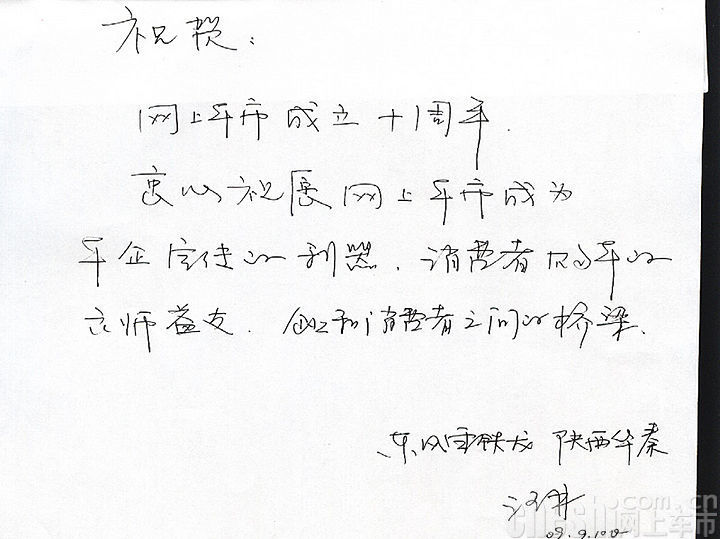 祝贺：
网上车市成立十周年.
衷心祝愿网上车市成为
车企宣传的利器.消费者购车的
良师益友.企业和消费者之间的桥梁.
东风雪铁龙 陕西华秦
09.9.10
.com.cn
网上车市